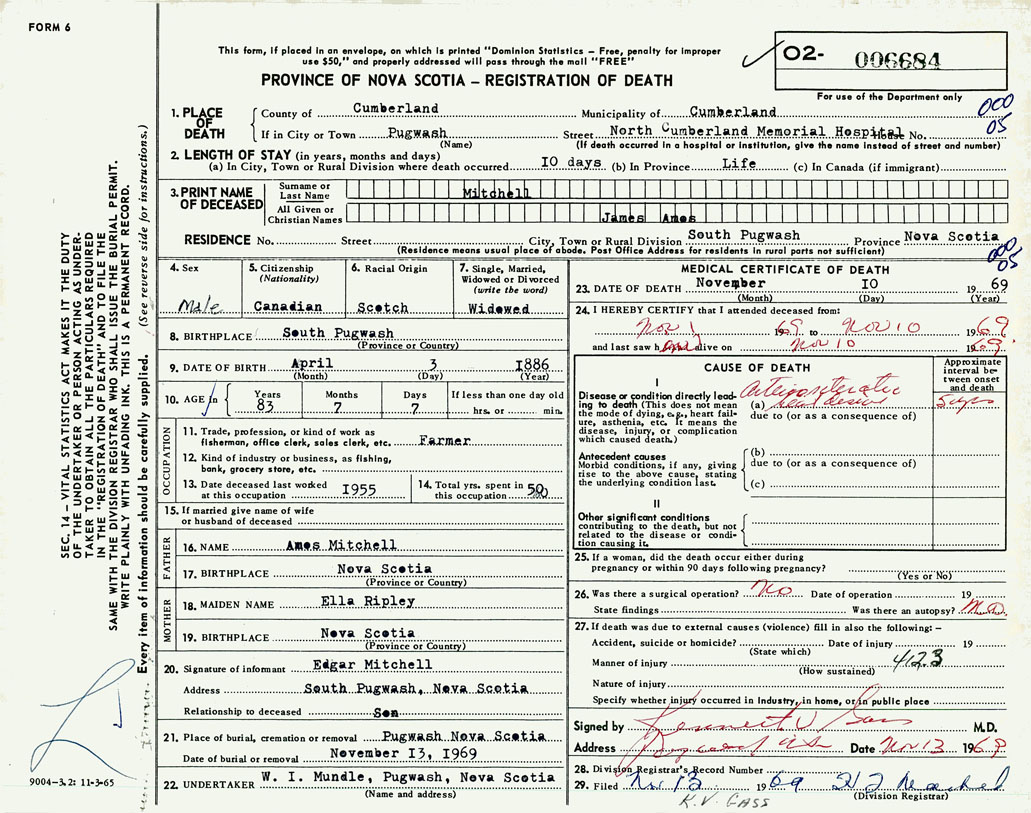 FORM 6
This form, if placed in an envelope, on which is printed "Dominion Statistics – Free, penalty for improper
use $50," and properly addressed will pass through the mail "FREE"
PROVINCE OF NOVA SCOTIA – REGISTRATION OF DEATH
O2- 006684
For use of the Department only
000
05
SEC. 14 – VITAL STATISTICS ACT MAKES IT THE DUTY
OF THE UNDERTAKER OR PERSON ACTING AS UNDER-
TAKER TO OBTAIN ALL THE PARTICULARS REQUIRED
IN THE "REGISTRATION OF DEATH" AND TO FILE THE
SAME WITH THE DIVISION REGISTRAR WHO SHALL ISSUE THE BURIAL PERMIT.
WRITE PLAINLY WITH UNFADING INK. THIS IS A PERMANENT RECORD.
Every item of information should be carefully supplied. (See reverse side for instructions.)
1. PLACE OF DEATH
County of Cumberland Municipality of Cumberland
If in City or Town Pugwash Street North Cumberland Memorial Hospital House No.
(Name) (If death occurred in a hospital or institution, give the name instead of street and number)
2. LENGTH OF STAY (in years, months and days)
(a) In City, Town or Rural Division where death occurred IO days (b) In Province Life (c) In Canada (if immigrant)
3. PRINT NAME OF DECEASED
Surname or Last Name Mitchell
All Given or Christian Names James Amos
RESIDENCE No. Street City, Town or Rural Division South Pugwash Province Nova Scotia
(Residence means usual place of abode. Post Office Address for residents in rural parts not sufficient)
000
05
4. Sex Male
5. Citizenship (Nationality) Canadian
6. Racial Origin Scotch
7. Single, Married, Widowed or Divorced (write the word) Widowed
8. BIRTHPLACE South Pugwash
(Province or Country)
9. DATE OF BIRTH April 3 I886
(Month) (Day) (Year)
10. AGE in Years 83 Months 7 Days 7 If less than one day old hrs. or min.
OCCUPATION
11. Trade, profession, or kind of work as
fisherman, office clerk, sales clerk, etc. Farmer
12. Kind of industry or business, as fishing,
bank, grocery store, etc.
13. Date deceased last worked
at this occupation I955
14. Total yrs. spent in
this occupation 50
15. If married give name of wife
or husband of deceased
FATHER
16. NAME Amos Mitchell
17. BIRTHPLACE Nova Scotia
(Province or Country)
MOTHER
18. MAIDEN NAME Ella Ripley
19. BIRTHPLACE Nova Scotia
(Province or Country)
20. Signature of informant Edgar Mitchell
Address South Pugwash, Nova Scotia
Relationship to deceased Son
21. Place of burial, cremation or removal Pugwash Nova Scotia
Date of burial or removal November I3, I969
22. UNDERTAKER W. I. Mundle, Pugwash, Nova Scotia
(Name and address)
9004–3.2: 11-3-65
MEDICAL CERTIFICATE OF DEATH
23. DATE OF DEATH November IO 19 69
(Month) (Day) (Year)
24. I HEREBY CERTIFY that I attended deceased from:
Nov 1 1969 to Nov 10 1969
and last saw h alive on Nov 10 1969
CAUSE OF DEATH
Approximate interval between onset and death
I
Disease or condition directly lead-
ing to death (This does not mean
the mode of dying, e.g., heart fail-
ure, asthenia, etc. It means the
disease, injury, or complication
which caused death.)
(a) Arteriosclerotic heart disease 5 yrs
due to (or as a consequence of)
Antecedent causes
Morbid conditions, if any, giving
rise to the above cause, stating
the underlying condition last.
(b)
due to (or as a consequence of)
(c)
II
Other significant conditions
contributing to the death, but not
related to the disease or condi-
tion causing it.
25. If a woman, did the death occur either during
pregnancy or within 90 days following pregnancy?
(Yes or No)
26. Was there a surgical operation? No Date of operation 19
State findings Was there an autopsy?
27. If death was due to external causes (violence) fill in also the following: –
Accident, suicide or homicide? Date of injury 19
(State which)
Manner of injury 412.3
(How sustained)
Nature of injury
Specify whether injury occurred in industry, in home, or in public place
Signed by Kenneth V Gass M.D.
Address Pugwash NS Date Nov 13 1969
28. Division Registrar's Record Number
29. Filed Nov 13 1969
(Division Registrar)
K.V. GASS